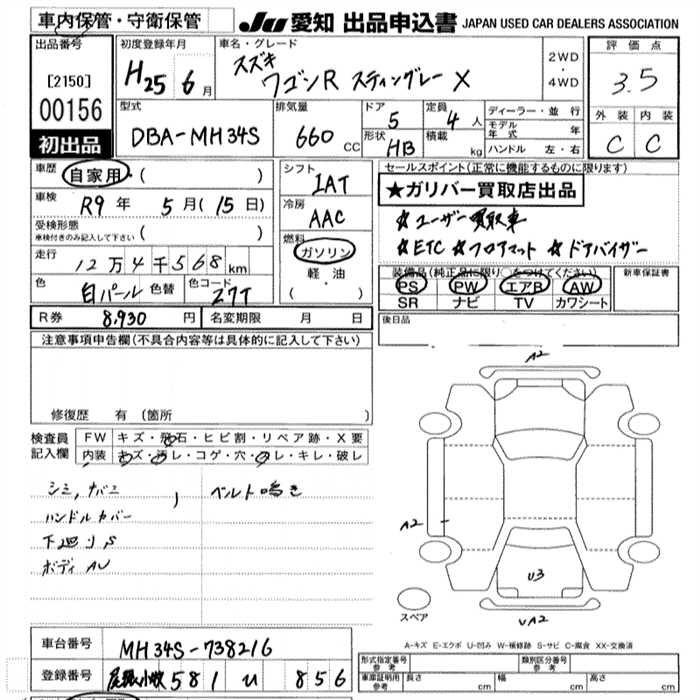 車内保管・守衛保管
JU 愛知 出品申込書 JAPAN USED CAR DEALERS ASSOCIATION
出品番号
[2150]
00156
初出品
初度登録年月
H25 6月
車名・グレード
スズキ
ワゴンR スティングレー X
2WD
・
4WD
評価点
3.5
外装 内装
C C
型式
DBA-MH34S
排気量
660 CC
ドア
5
定員
4人
形状
HB
積載
kg
ディーラー・並行
モデル年式 年
ハンドル 左・右
車歴
自家用 ( )
車検
R9年 5月(15日)
受検形態
車検付きのみ記入して下さい ( )
走行
12万4千568km
色
白パール 色替
色コード
Z7T
シフト
IAT
冷房
AAC
燃料
ガソリン
軽・油
( ・ )
セールスポイント(正常に機能するものに限ります)
★ガリバー買取店出品
☆ユーザー買取車
☆ETC ☆フロアマット ☆ドアバイザー
装備品(純正品に限り○をつけてください)
PS PW エアB AW
SR ナビ TV カワシート
新車保証書
後日品
R券 8,930円
名変期限 月 日
注意事項申告欄(不具合内容等は具体的に記入して下さい)
修復歴 有(箇所 )
検査員記入欄
FW キズ・飛石・ヒビ割・リペア跡・X要
内装 キズ・汚レ・コゲ・穴・スレ・キレ・破レ
シミ,ナバミ
ベルト鳴き
ハンドルカバー
下廻りS
ボディAU
A2
A2
U3
UA2
スペア
A-キズ E-エクボ U-凹み W-補修跡 S-サビ C-腐食 XX-交換済
車台番号
MH34S-738216
登録番号
尾張小牧 581 U 856
型式指定番号
参考
類別区分番号
参考
車庫証明用
参考
長さ cm
幅 cm
高さ cm